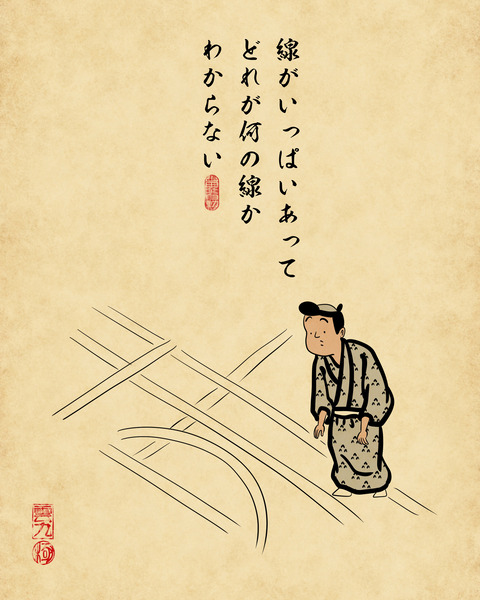 線がいっぱいあって
どれが何の線か
わからない